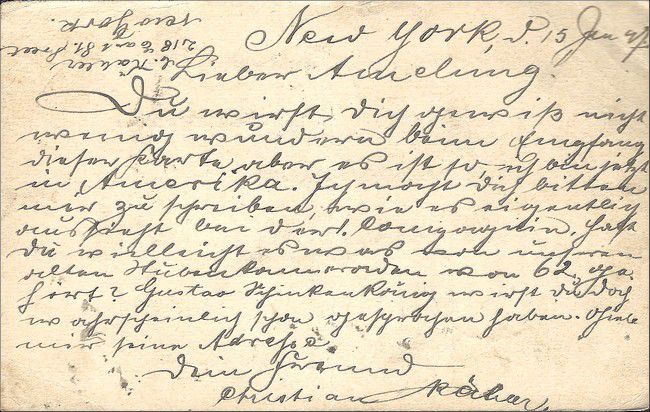 New York, d. 15 Jan
Lieber Amelung.
Du wirst Dich gewiß nicht
wenig wundern beim Empfang
dieser Karte aber es ist so ich bin jetzt
in Amerika. Ich möcht Dich bitten
mir zu schreiben, wie es eigentlich
aussieht bei der 1. Compagnie, hast
Du vielleicht etwas von unseren
alten Stubenkammeraden von 62 ge-
hört? Gustav Schinkenkönig wirst du doch
wahrscheinlich schon gesprochen haben. Gieb
mir seine Adresse
Dein Freund
Christian
218 East 81. Street
New York.